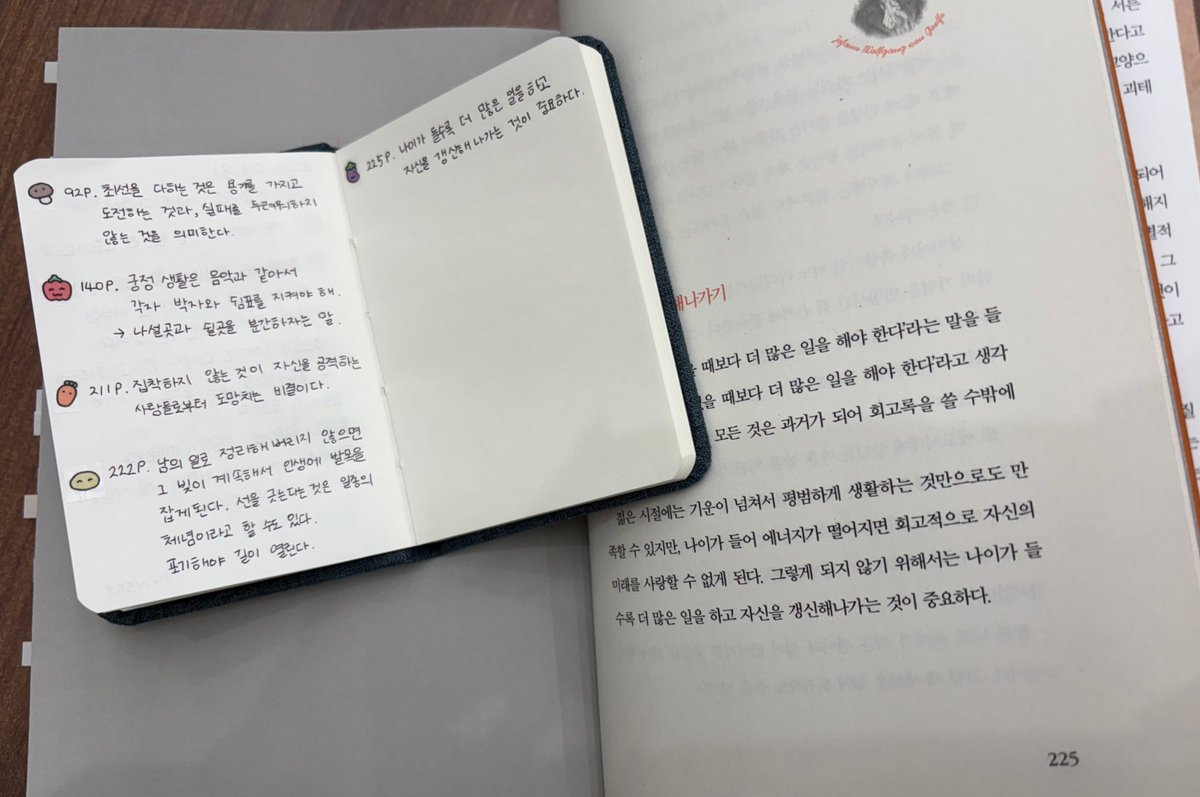 92P. 최선을 다하는 것은 용기를 가지고
도전하는 것과, 실패를 두려워하지
않는 것을 의미한다.
140P. 궁정 생활은 음악과 같아서
각자 박자와 쉼표를 지켜야 해.
→ 나설곳과 쉴곳을 분간하자는 말.
211P. 집착하지 않는 것이 자신을 공격하는
사람들로부터 도망치는 비결이다.
222P. 남의 일로 정리해버리지 않으면
그 빚이 계속해서 인생에 발목을
잡게된다. 선을 긋는다는 것은 일종의
체념이라고 할 수도 있다.
포기해야 길이 열린다.
225P. 나이가 들수록 더 많은 일을 하고
자신을 갱신해 나가는 것이 중요하다.
Johann Wolfgang von Goethe
해나가기
때보다 더 많은 일을 해야 한다'라는 말을 들
때보다 더 많은 일을 해야 한다'라고 생각
모든 것은 과거가 되어 회고록을 쓸 수밖에
젊은 시절에는 기운이 넘쳐서 평범하게 생활하는 것만으로도 만
족할 수 있지만, 나이가 들어 에너지가 떨어지면 회고적으로 자신의
미래를 사랑할 수 없게 된다. 그렇게 되지 않기 위해서는 나이가 들
수록 더 많은 일을 하고 자신을 갱신해나가는 것이 중요하다.
225
서른
한다고
고양으
괴테
되어
해지
열적
그